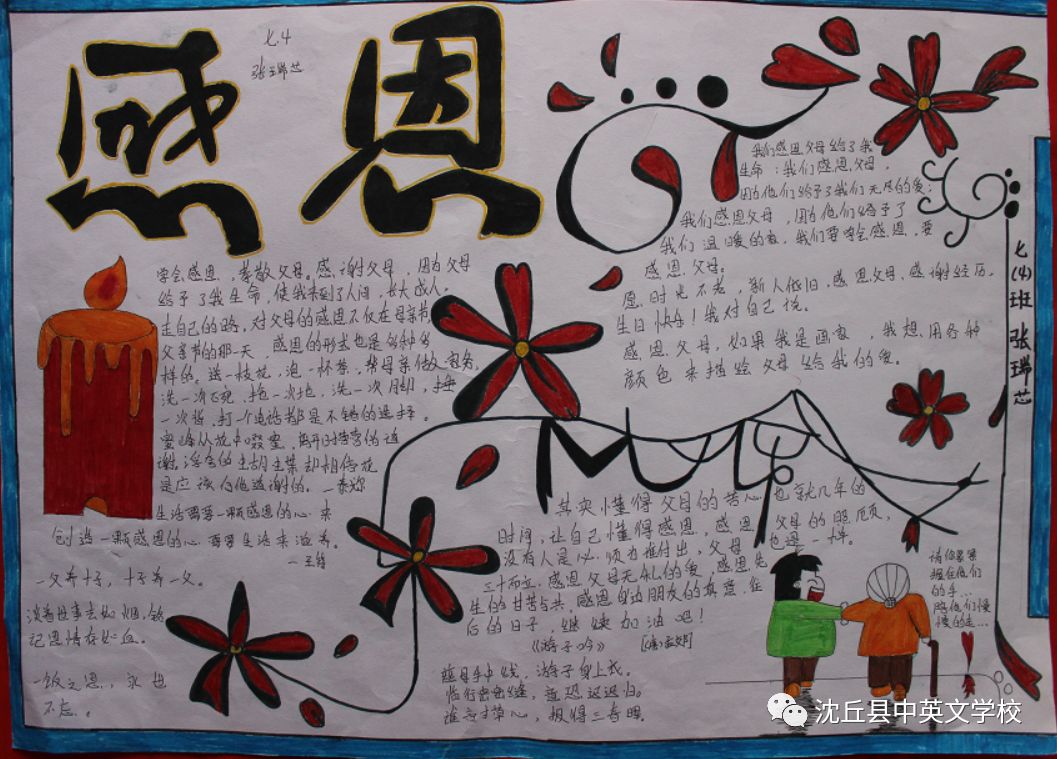 感恩
七.4
张瑞芯
我们感恩父母给了我
生命；我们感恩父母，
因他们给予了我们无尽的爱；
我们感恩父母，因为他们给予了
我们温暖的家，我们要学会感恩，要
感恩父母。
愿时光不老，新人依旧，感恩父母，感谢经历，
生日快乐！我对自己说。
感恩父母，如果我是画家，我想用各种
颜色来描绘父母给我的爱。
七(4)班 张瑞芯
学会感恩，孝敬父母。感谢父母，因为父母
给予了我生命，使我来到了人间，长大成人，
走自己的路。对父母的感恩不仅在母亲节
父亲节的那一天，感恩的形式也是多种多
样的。送一枝花，泡一杯茶，帮母亲做次家务，
洗一次碗，拖一次地，洗一次脚，捶
一次背，打个电话都是不错的选择。
蜜蜂从花中啜蜜，离开时营营的道
谢。浮夸的蝴蝶却相信花
是应该向他道谢的。—泰戈尔
生活需要一颗感恩的心来
创造一颗感恩的心需要生活来滋养。
—王符
一父养十子，十子养一父。
淡看世事去如烟，铭
记恩情存如血。
一饭之恩，永世
不忘。
其实懂得父母的苦心也就几年的
时间，让自己懂得感恩，感恩父母的照顾，
没有人是必须为谁付出，父母也是一样。
三十而立，感恩父母无私的爱，感恩先
生的甘苦与共，感恩身边朋友的真意，在
后的日子，继续加油吧！
《游子吟》 [唐]孟郊
慈母手中线，游子身上衣。
临行密密缝，意恐迟迟归。
谁言寸草心，报得三春晖。
请你紧紧
握住他们
的手…
陪他们慢
慢的走…
沈丘县中英文学校